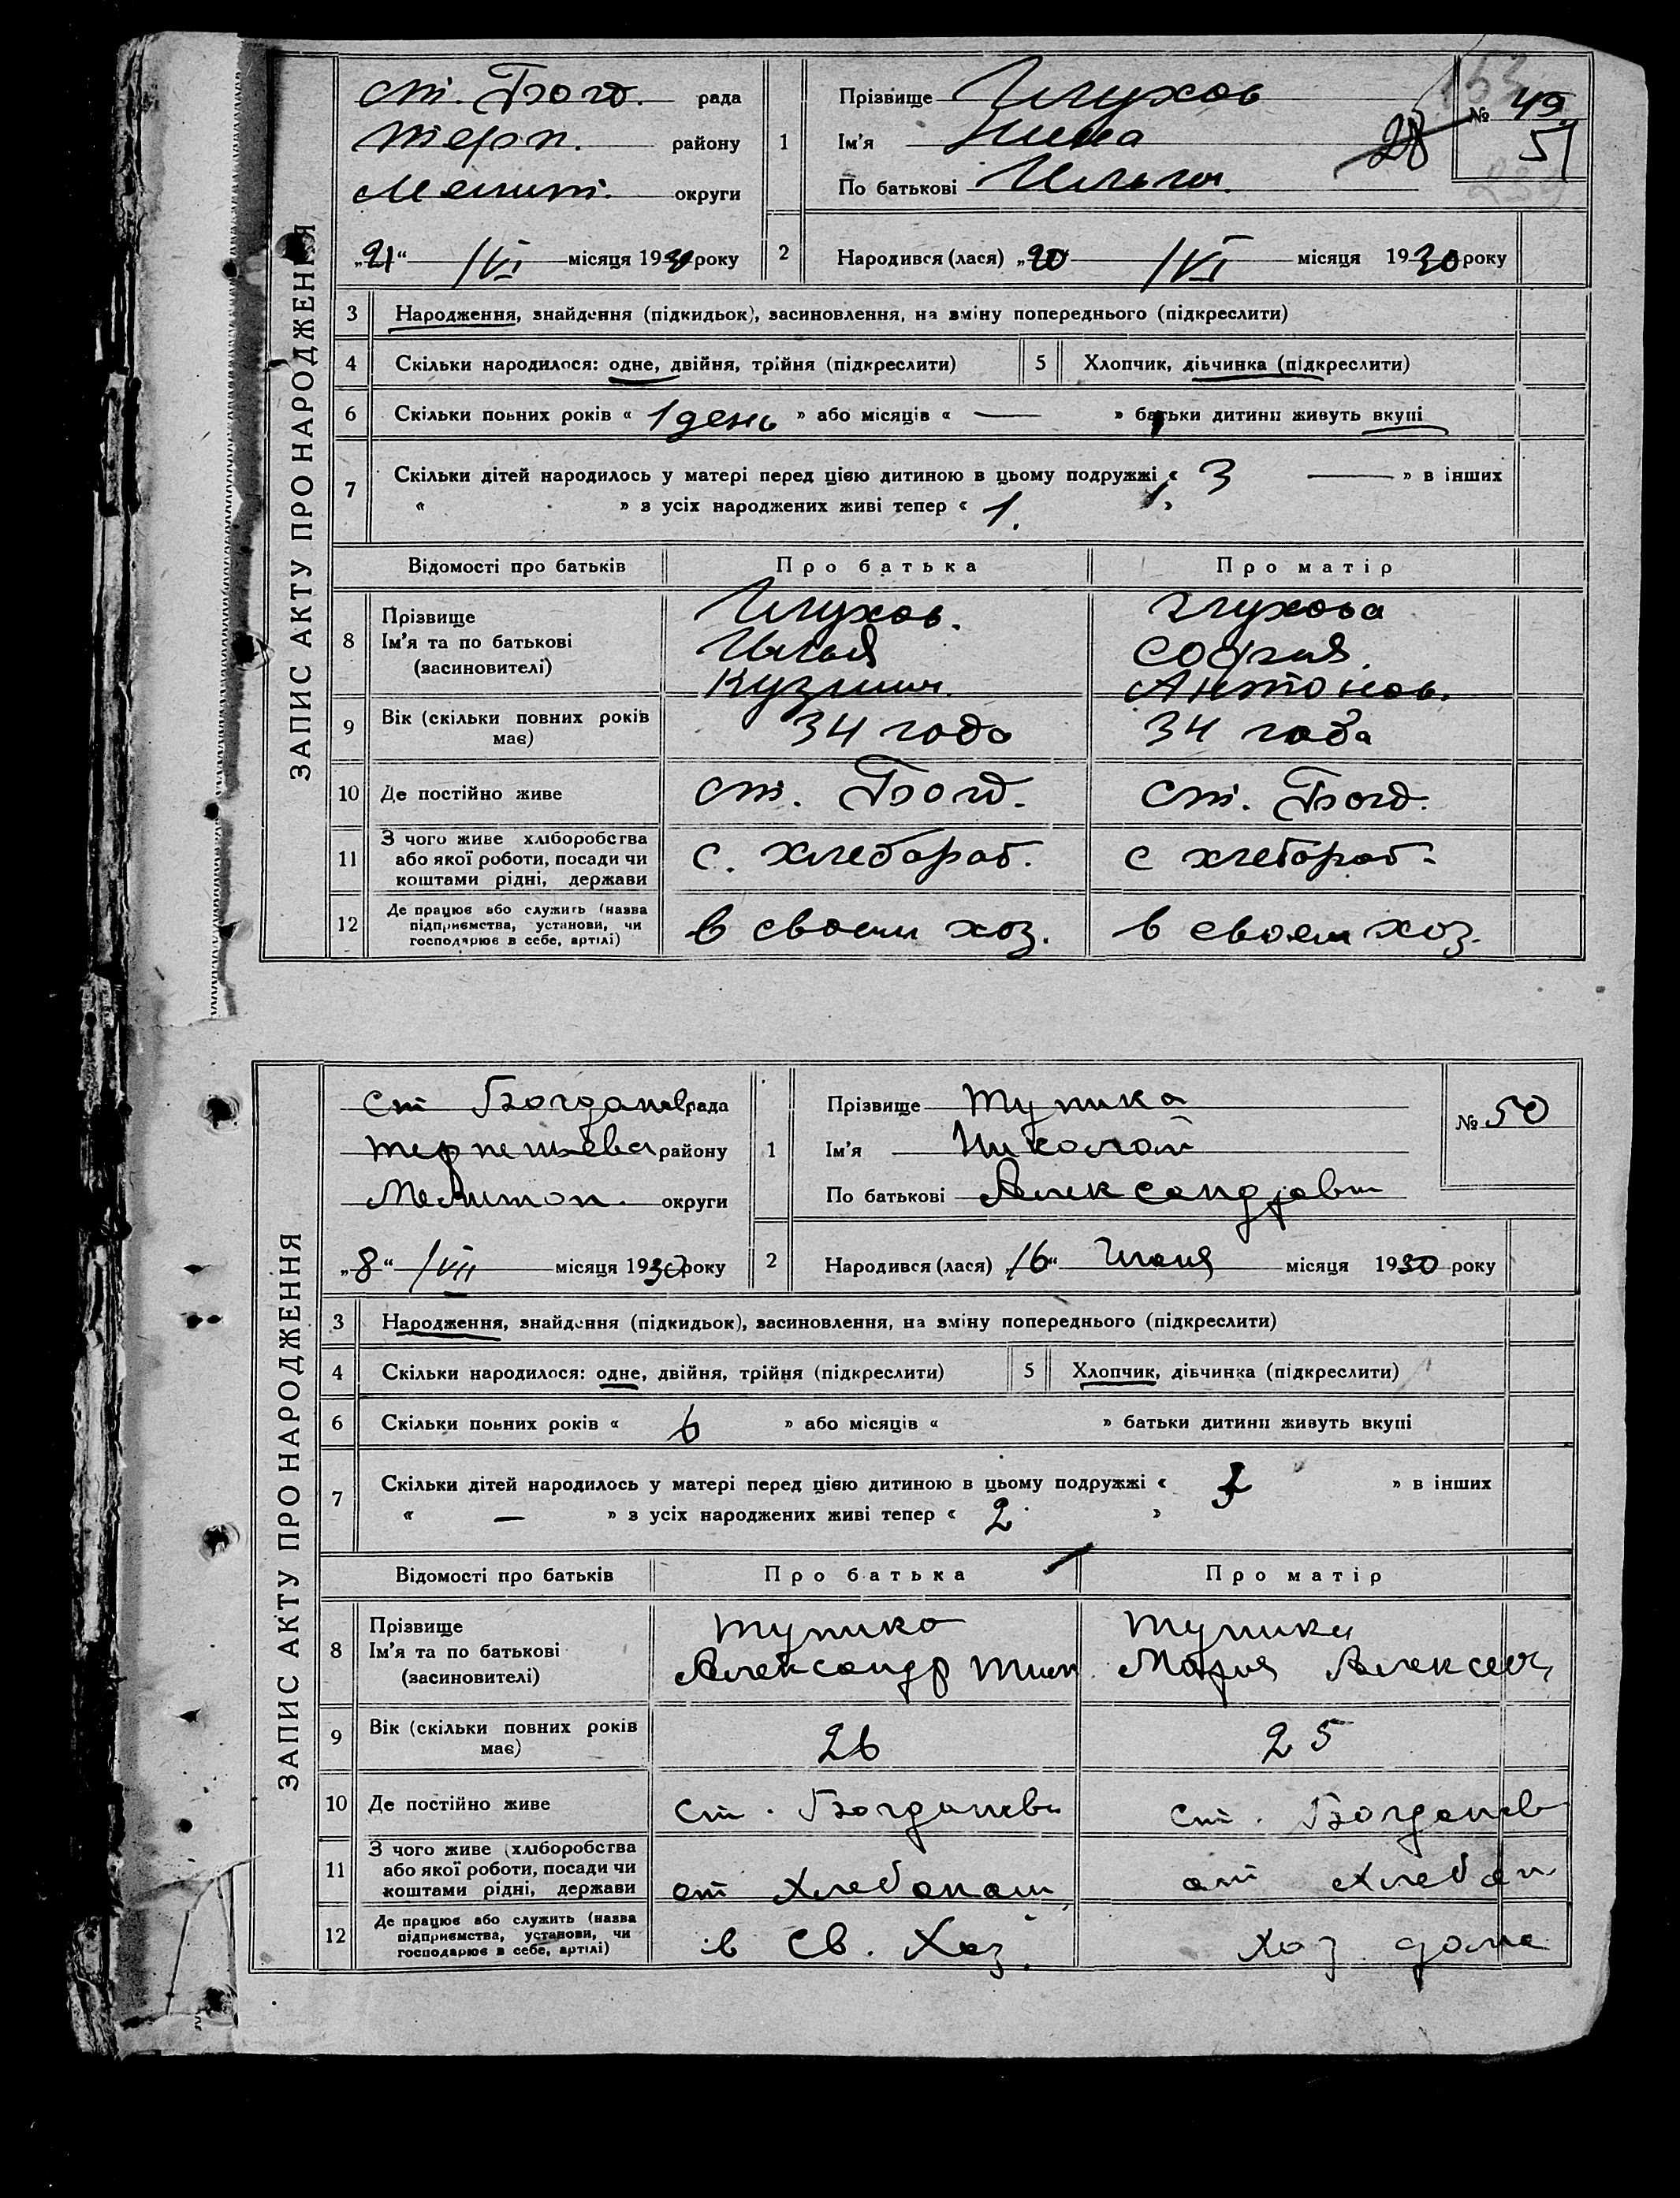 ЗАПИС АКТУ ПРО НАРОДЖЕННЯ
ст. Богд. рада
терп. району
Мелит. округи
„21“ /VI місяця 1930 року
1 Прізвище Глухов
Ім'я Нина
По батькові Ильин.
№ 49
51
28
2 Народився (лася) „20“ /VI місяця 1930 року
3 Народження, знайдення (підкидьок), засиновлення, на зміну попереднього (підкреслити)
4 Скільки народилося: одне, двійня, трійня (підкреслити) 5 Хлопчик, дівчинка (підкреслити)
6 Скільки повних років « 1 день » або місяців « — » батьки дитини живуть вкупі
7 Скільки дітей народилось у матері перед цією дитиною в цьому подружжі « 3 — » в інших
« » з усіх народжених живі тепер « 1. »
Відомості про батьків Про батька Про матір
8 Прізвище Глухов. Глухова
Ім'я та по батькові Илья София.
(засиновителі) Кузмич. Антонов.
9 Вік (скільки повних років має) 34 года 34 года
10 Де постійно живе ст. Богд. ст. Богд.
11 З чого живе хліборобства
або якої роботи, посади чи с. хлебораб. с хлебораб.
коштами рідні, держави
12 Де працює або служить (назва
підприємства, установи, чи в своем хоз. в своем хоз.
господарює в себе, артілі)
ЗАПИС АКТУ ПРО НАРОДЖЕННЯ
ст Богданов рада
району
Мелитоп. округи
„8“ /VII місяця 1930 року
1 Прізвище Тупика
Ім'я Николай
По батькові
№ 50
2 Народився (лася) „16“ Июня місяця 1930 року
3 Народження, знайдення (підкидьок), засиновлення, на зміну попереднього (підкреслити)
4 Скільки народилося: одне, двійня, трійня (підкреслити) 5 Хлопчик, дівчинка (підкреслити)
6 Скільки повних років « » або місяців « » батьки дитини живуть вкупі
7 Скільки дітей народилось у матері перед цією дитиною в цьому подружжі « » в інших
« — » з усіх народжених живі тепер « 2 »
Відомості про батьків Про батька Про матір
8 Прізвище Тупико Тупика
Ім'я та по батькові Александр Мария Алексееч
(засиновителі)
9 Вік (скільки повних років має) 26 25
10 Де постійно живе ст. Богдановки ст. Богданов
11 З чого живе (хліборобства
або якої роботи, посади чи от Хлебопаш от Хлебоп
коштами рідні, держави
12 Де працює або служить (назва
підприємства, установи, чи в Св. Хоз. Хоз. дома
господарює в себе, артілі)